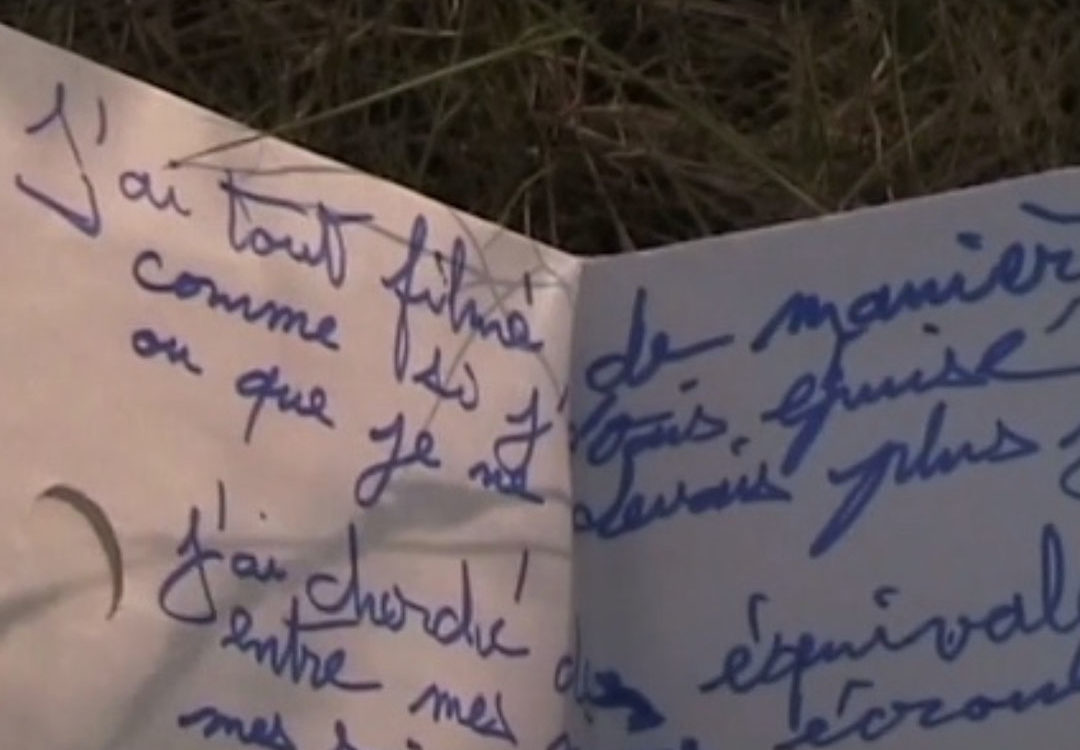 J'ai tout filmé de manièr
comme si j'étais épuisé
ou que je ne devais plus
j'ai cherché des équival
entre mes écroul
mes